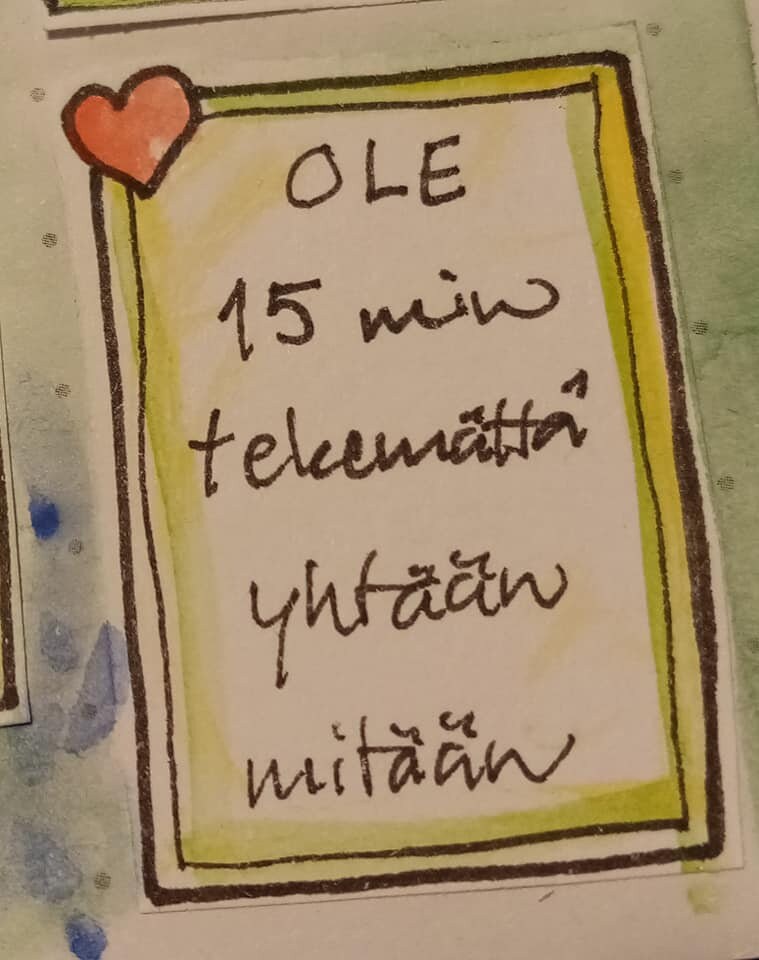 OLE
15 min
tekemättä
yhtään
mitään